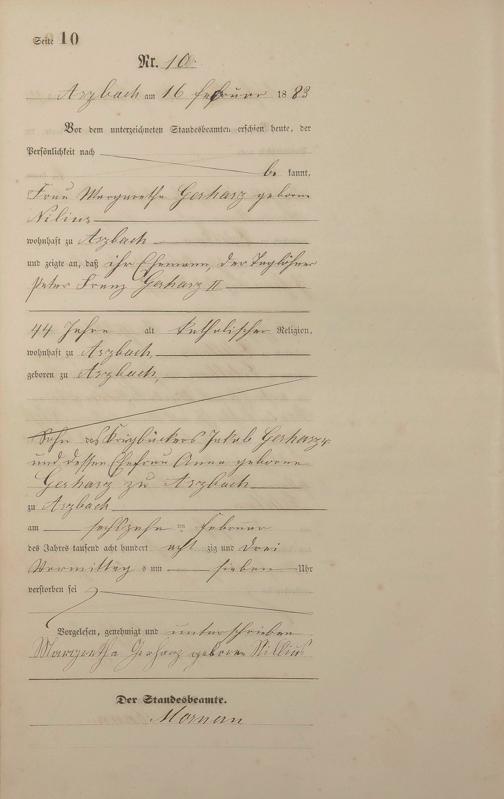 Seite 10
Nr. 10.
Arzbach am 16 februar 1883
Vor dem unterzeichneten Standesbeamten erschien heute, der
Persönlichkeit nach
be kannt,
Frau Margarethe Gerharz geborne
Nilius
wohnhaft zu Arzbach
und zeigte an, daß ihr Ehemann, der Taglöhner
Peter Franz Gerharz II
44 Jahre alt katholischer Religion,
wohnhaft zu Arzbach,
geboren zu Arzbach,
Sohn des Krugbäckers Jakob Gerharz
und dessen Ehefrau Anna geborne
Gerharz zu Arzbach
zu Arzbach
am sechszehn ten Februar
des Jahres tausend acht hundert acht zig und drei
Vormittag s um sieben Uhr
verstorben sei
Vorgelesen, genehmigt und unterschrieben
Margretha Gerharz geboren Nillius
Der Standesbeamte.